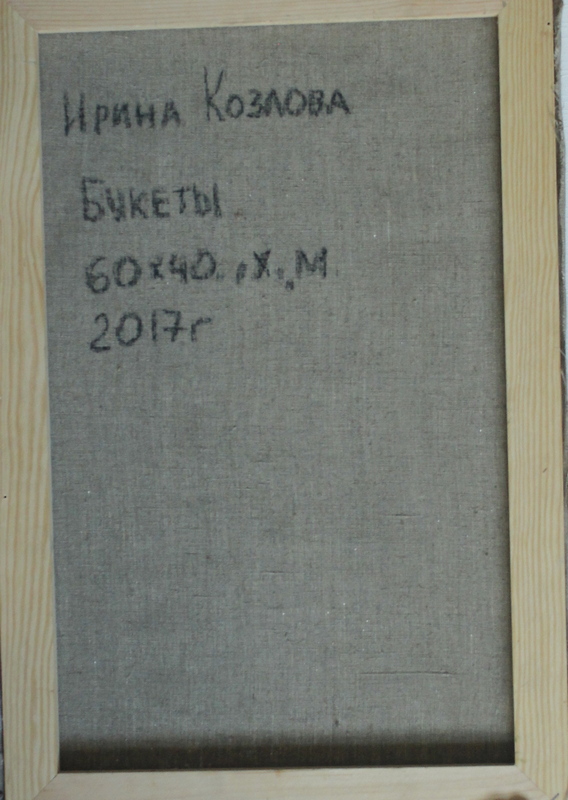 Ирина Козлова
Букеты
60x40. ,х.,м
2017г